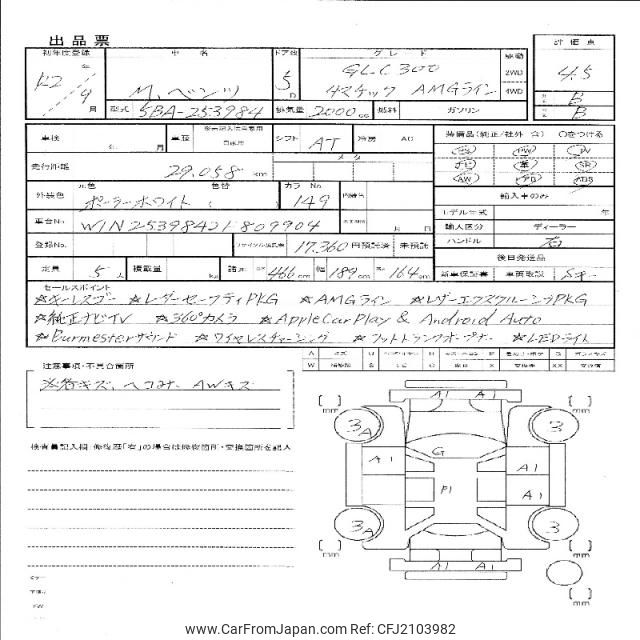 出品票
初年度登録 車名 ドア数 グレード 駆動 評価点
R2 年 9 月 M.ベンツ 5 D GLC300 4マチック AMGライン 2WD 4WD 4.5
型式 5BA-253984 排気量 2000 cc 燃料 ガソリン B B
車検 年 月 車歴 自家用 シフト AT 冷房 AC 装備品(純正/社外 含) ○をつける
走行距離 29,058 km メータ
SR PW
AW PB ABS
元色 色替 カラーNo.
外装色 ポーラーホワイト 149 内装色 輸入車のみ
車台No. W1N2539842V809904 月 日 モデル年式 年
登録No. リサイクル預託金 17,360 円預託済 未預託 輸入区分 ディーラー
ハンドル 右
定員 5 人 積載量 kg 諸元 長さ 466 cm 幅 189 cm 高さ 164 cm 後日発送品
新車保証書 車両取説 Sキー
セールスポイント
☆キーレスゴー ☆レーダーセーフティPKG ☆AMGライン ☆レザーエクスクルーシブPKG
☆純正ナビTV ☆360°カメラ ☆AppleCarPlay & Android Auto
☆Burmesterサウンド ☆ワイヤレスチャージング ☆フットトランクオープナー ☆LEDライト
注意事項・不具合箇所
※各キズ、ヘコミ、AWキズ
検査員記入欄 修復歴「有」の場合は修復箇所・交換箇所を記入
[ ] mm A1 A1 [ ] mm
3 A 3
A1 G A1
P1 A1
3 A 3
[ ] mm A1 A1 [ ] mm
[ ] mm
www.CarFromJapan.com Ref: CFJ2103982